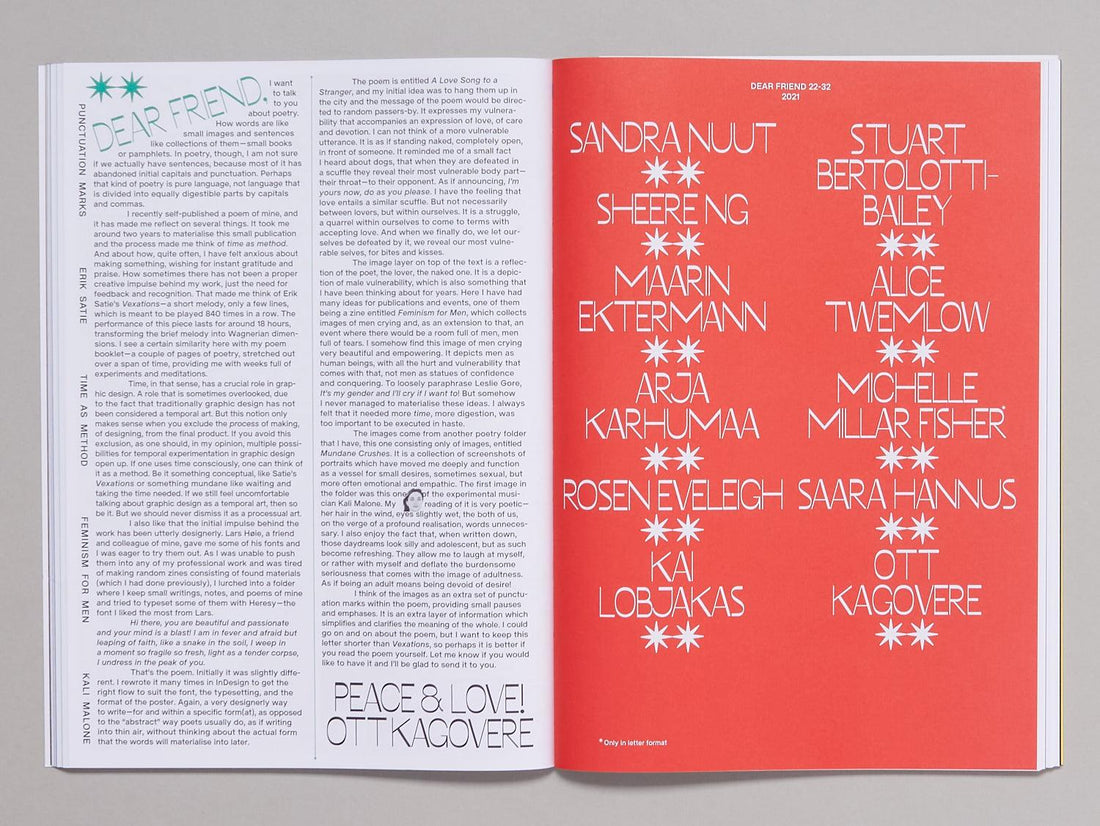 PUNCTUATION MARKS
ERIK SATIE
TIME AS METHOD
FEMINISM FOR MEN
KALI MALONE
DEAR FRIEND,
I want
to talk
to you
about poetry.
How words are like
small images and sentences
like collections of them—small books
or pamphlets. In poetry, though, I am not sure
if we actually have sentences, because most of it has
abandoned initial capitals and punctuation. Perhaps
that kind of poetry is pure language, not language that
is divided into equally digestible parts by capitals
and commas.
I recently self-published a poem of mine, and
it has made me reflect on several things. It took me
around two years to materialise this small publication
and the process made me think of time as method.
And about how, quite often, I have felt anxious about
making something, wishing for instant gratitude and
praise. How sometimes there has not been a proper
creative impulse behind my work, just the need for
feedback and recognition. That made me think of Erik
Satie's Vexations—a short melody, only a few lines,
which is meant to be played 840 times in a row. The
performance of this piece lasts for around 18 hours,
transforming the brief melody into Wagnerian dimen-
sions. I see a certain similarity here with my poem
booklet—a couple of pages of poetry, stretched out
over a span of time, providing me with weeks full of
experiments and meditations.
Time, in that sense, has a crucial role in grap-
hic design. A role that is sometimes overlooked, due
to the fact that traditionally graphic design has not
been considered a temporal art. But this notion only
makes sense when you exclude the process of making,
of designing, from the final product. If you avoid this
exclusion, as one should, in my opinion, multiple possi-
bilities for temporal experimentation in graphic design
open up. If one uses time consciously, one can think of
it as a method. Be it something conceptual, like Satie's
Vexations or something mundane like waiting and
taking the time needed. If we still feel uncomfortable
talking about graphic design as a temporal art, then so
be it. But we should never dismiss it as a processual art.
I also like that the initial impulse behind the
work has been utterly designerly. Lars Høie, a friend
and colleague of mine, gave me some of his fonts and
I was eager to try them out. As I was unable to push
them into any of my professional work and was tired
of making random zines consisting of found materials
(which I had done previously), I lurched into a folder
where I keep small writings, notes, and poems of mine
and tried to typeset some of them with Heresy—the
font I liked the most from Lars.
Hi there, you are beautiful and passionate
and your mind is a blast! I am in fever and afraid but
leaping of faith, like a snake in the soil, I weep in
a moment so fragile so fresh, light as a tender corpse,
I undress in the peak of you.
That's the poem. Initially it was slightly diffe-
rent. I rewrote it many times in InDesign to get the
right flow to suit the font, the typesetting, and the
format of the poster. Again, a very designerly way
to write—for and within a specific form(at), as opposed
to the "abstract" way poets usually do, as if writing
into thin air, without thinking about the actual form
that the words will materialise into later.
The poem is entitled A Love Song to a
Stranger, and my initial idea was to hang them up in
the city and the message of the poem would be direc-
ted to random passers-by. It expresses my vulnera-
bility that accompanies an expression of love, of care
and devotion. I can not think of a more vulnerable
utterance. It is as if standing naked, completely open,
in front of someone. It reminded me of a small fact
I heard about dogs, that when they are defeated in
a scuffle they reveal their most vulnerable body part—
their throat—to their opponent. As if announcing, I'm
yours now, do as you please. I have the feeling that
love entails a similar scuffle. But not necessarily
between lovers, but within ourselves. It is a struggle,
a quarrel within ourselves to come to terms with
accepting love. And when we finally do, we let our-
selves be defeated by it, we reveal our most vulne-
rable selves, for bites and kisses.
The image layer on top of the text is a reflec-
tion of the poet, the lover, the naked one. It is a depic-
tion of male vulnerability, which is also something that
I have been thinking about for years. Here I have had
many ideas for publications and events, one of them
being a zine entitled Feminism for Men, which collects
images of men crying and, as an extension to that, an
event where there would be a room full of men, men
full of tears. I somehow find this image of men crying
very beautiful and empowering. It depicts men as
human beings, with all the hurt and vulnerability that
comes with that, not men as statues of confidence
and conquering. To loosely paraphrase Leslie Gore,
It's my gender and I'll cry if I want to! But somehow
I never managed to materialise these ideas. I always
felt that it needed more time, more digestion, was
too important to be executed in haste.
The images come from another poetry folder
that I have, this one consisting only of images, entitled
Mundane Crushes. It is a collection of screenshots of
portraits which have moved me deeply and function
as a vessel for small desires, sometimes sexual, but
more often emotional and empathic. The first image in
the folder was this one of the experimental musi-
cian Kali Malone. My reading of it is very poetic—
her hair in the wind, eyes slightly wet, the both of us,
on the verge of a profound realisation, words unneces-
sary. I also enjoy the fact that, when written down,
those daydreams look silly and adolescent, but as such
become refreshing. They allow me to laugh at myself,
or rather with myself and deflate the burdensome
seriousness that comes with the image of adultness.
As if being an adult means being devoid of desire!
I think of the images as an extra set of punctu-
ation marks within the poem, providing small pauses
and emphases. It is an extra layer of information which
simplifies and clarifies the meaning of the whole. I could
go on and on about the poem, but I want to keep this
letter shorter than Vexations, so perhaps it is better if
you read the poem yourself. Let me know if you would
like to have it and I'll be glad to send it to you.
PEACE & LOVE!
OTT KAGOVERE
DEAR FRIEND 22-32
2021
SANDRA NUUT
SHEERE NG
MAARIN
EKTERMANN
ARJA
KARHUMAA
ROSEN EVELEIGH
KAI
LOBJAKAS
STUART
BERTOLOTTI-
BAILEY
ALICE
TWEMLOW
MICHELLE
MILLAR FISHER*
SAARA HANNUS
OTT
KAGOVERE
* Only in letter format